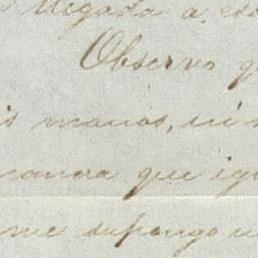 llegada a es
Observo q
is manos, ni
manera que ig
me supongo u